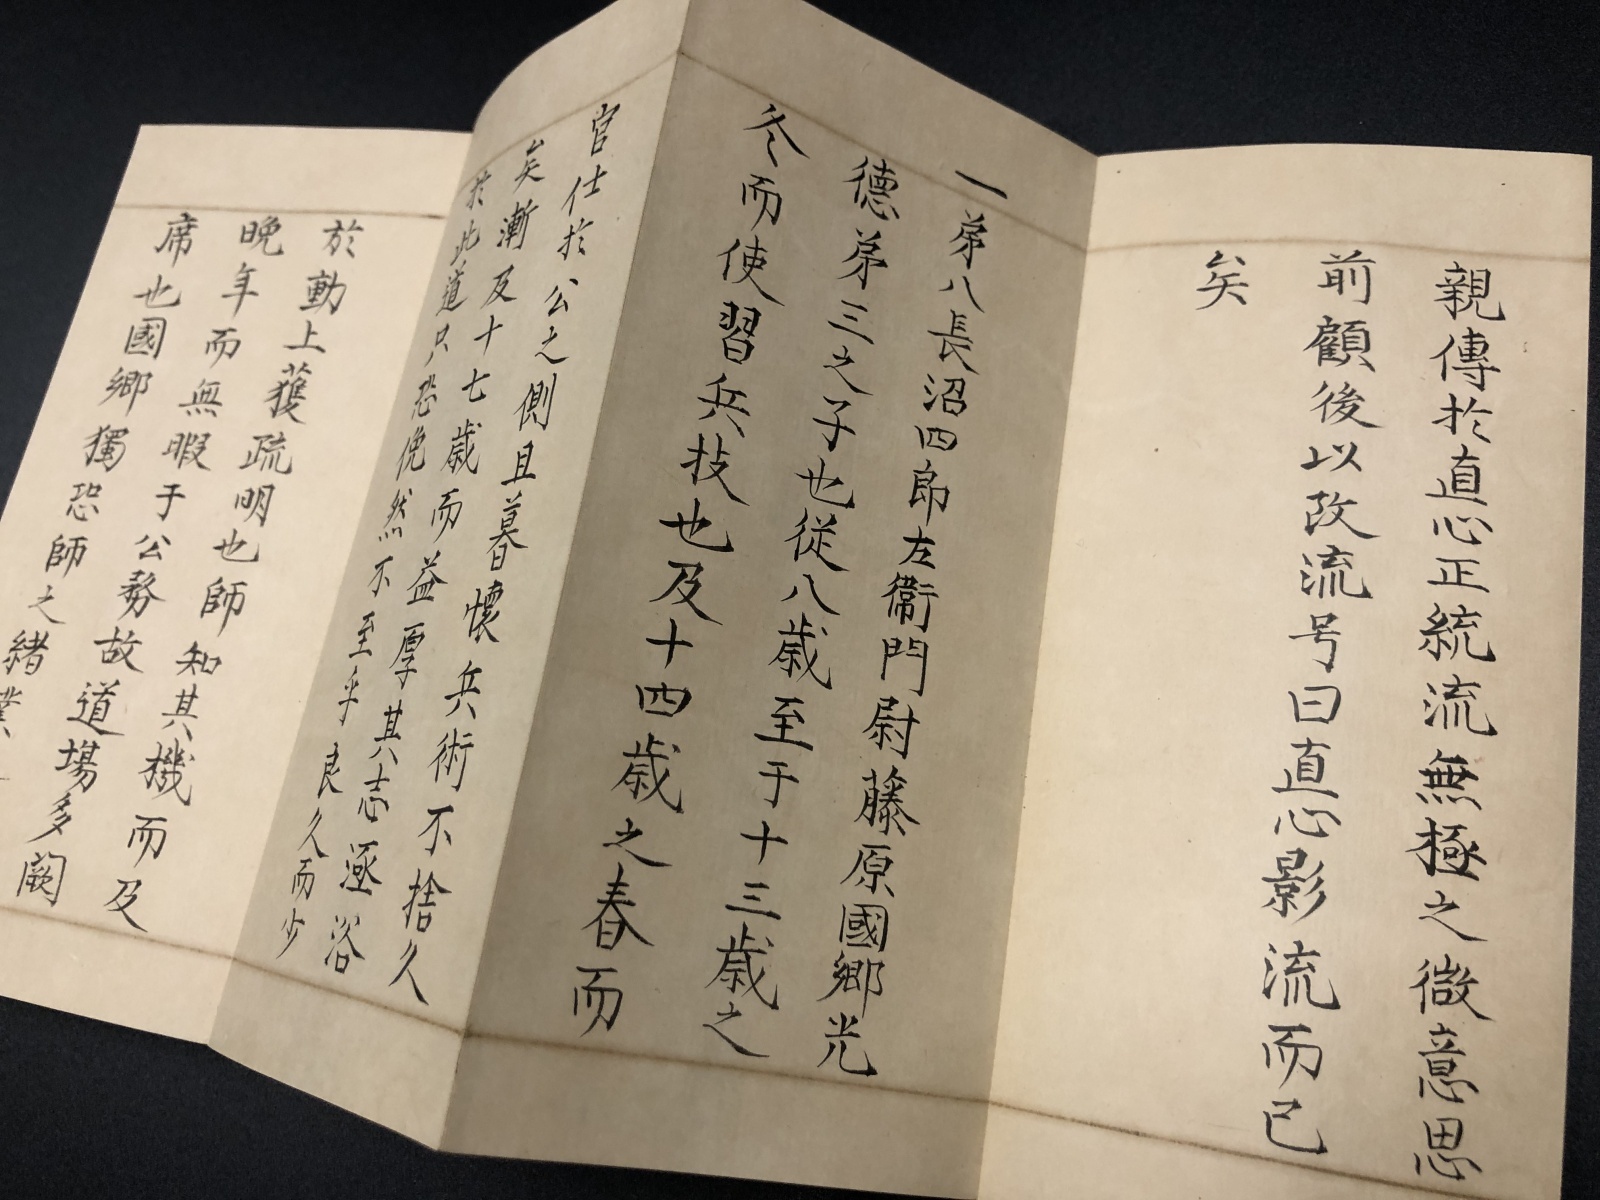 親傳於直心正統流無極之微意思
前顧後以改流号曰直心影流而已
矣
一弟八長沼四郎左衞門尉藤原國郷光
德弟三之子也從八歳至于十三歳之
冬而使習兵技也及十四歳之春而
官仕於公之側且暮懷兵術不捨久
矣漸及十七歳而益厚其志逐浴
於此道只恐俛然不至乎良久而少
於動上獲疏明也師知其機而及
晩年而無暇于公務故道場多闕
席也國郷獨恐師之緒業